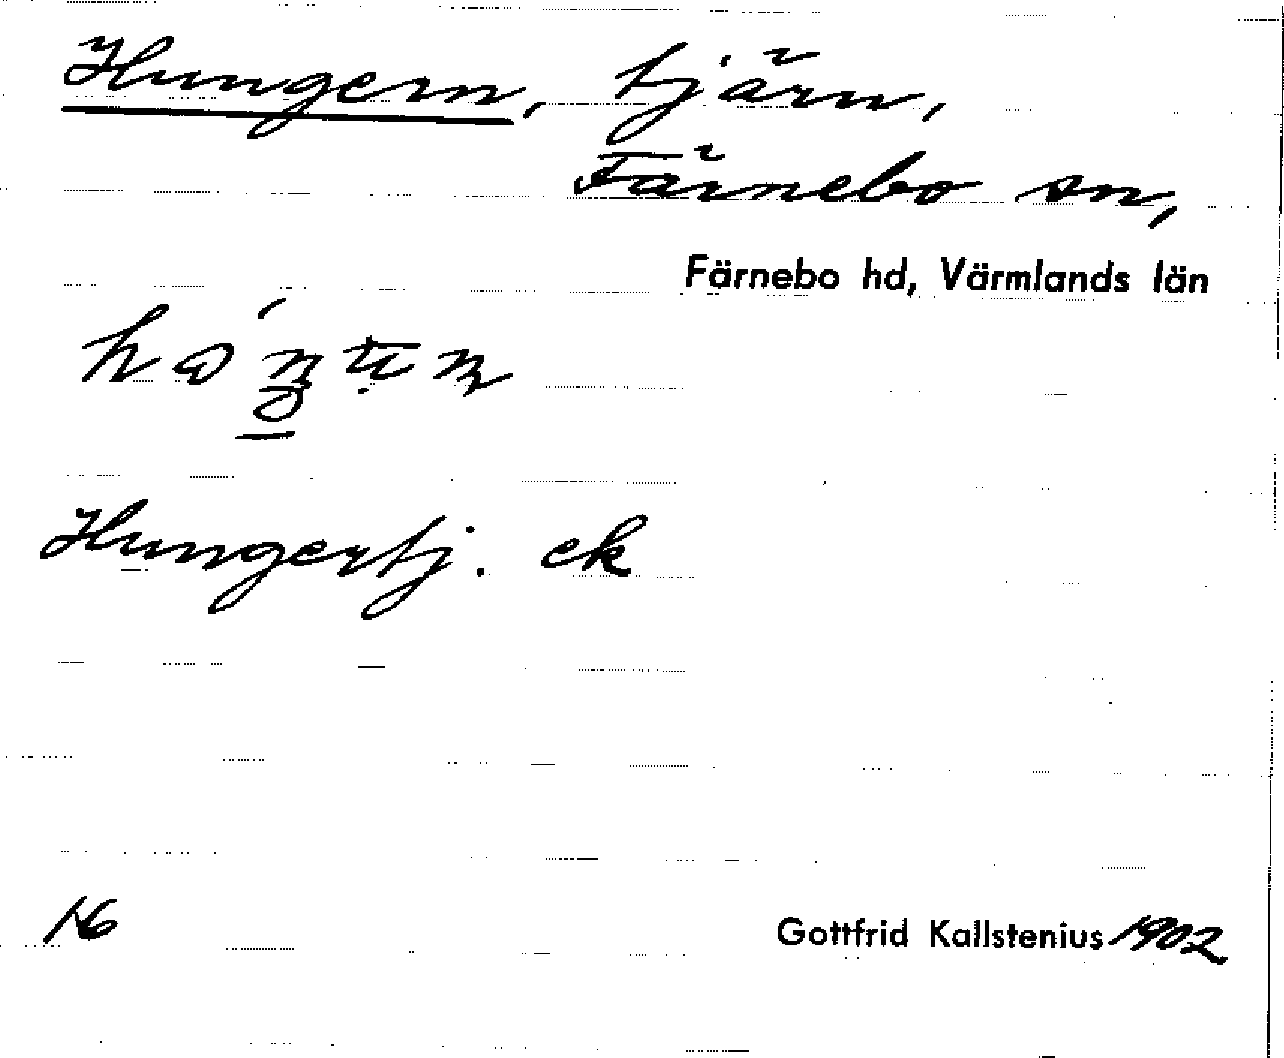 Hungern, tjärn,
Färnebo sn,
Färnebo hd, Värmlands län
Hungertj. ek
16
Gottfrid Kallstenius 1902